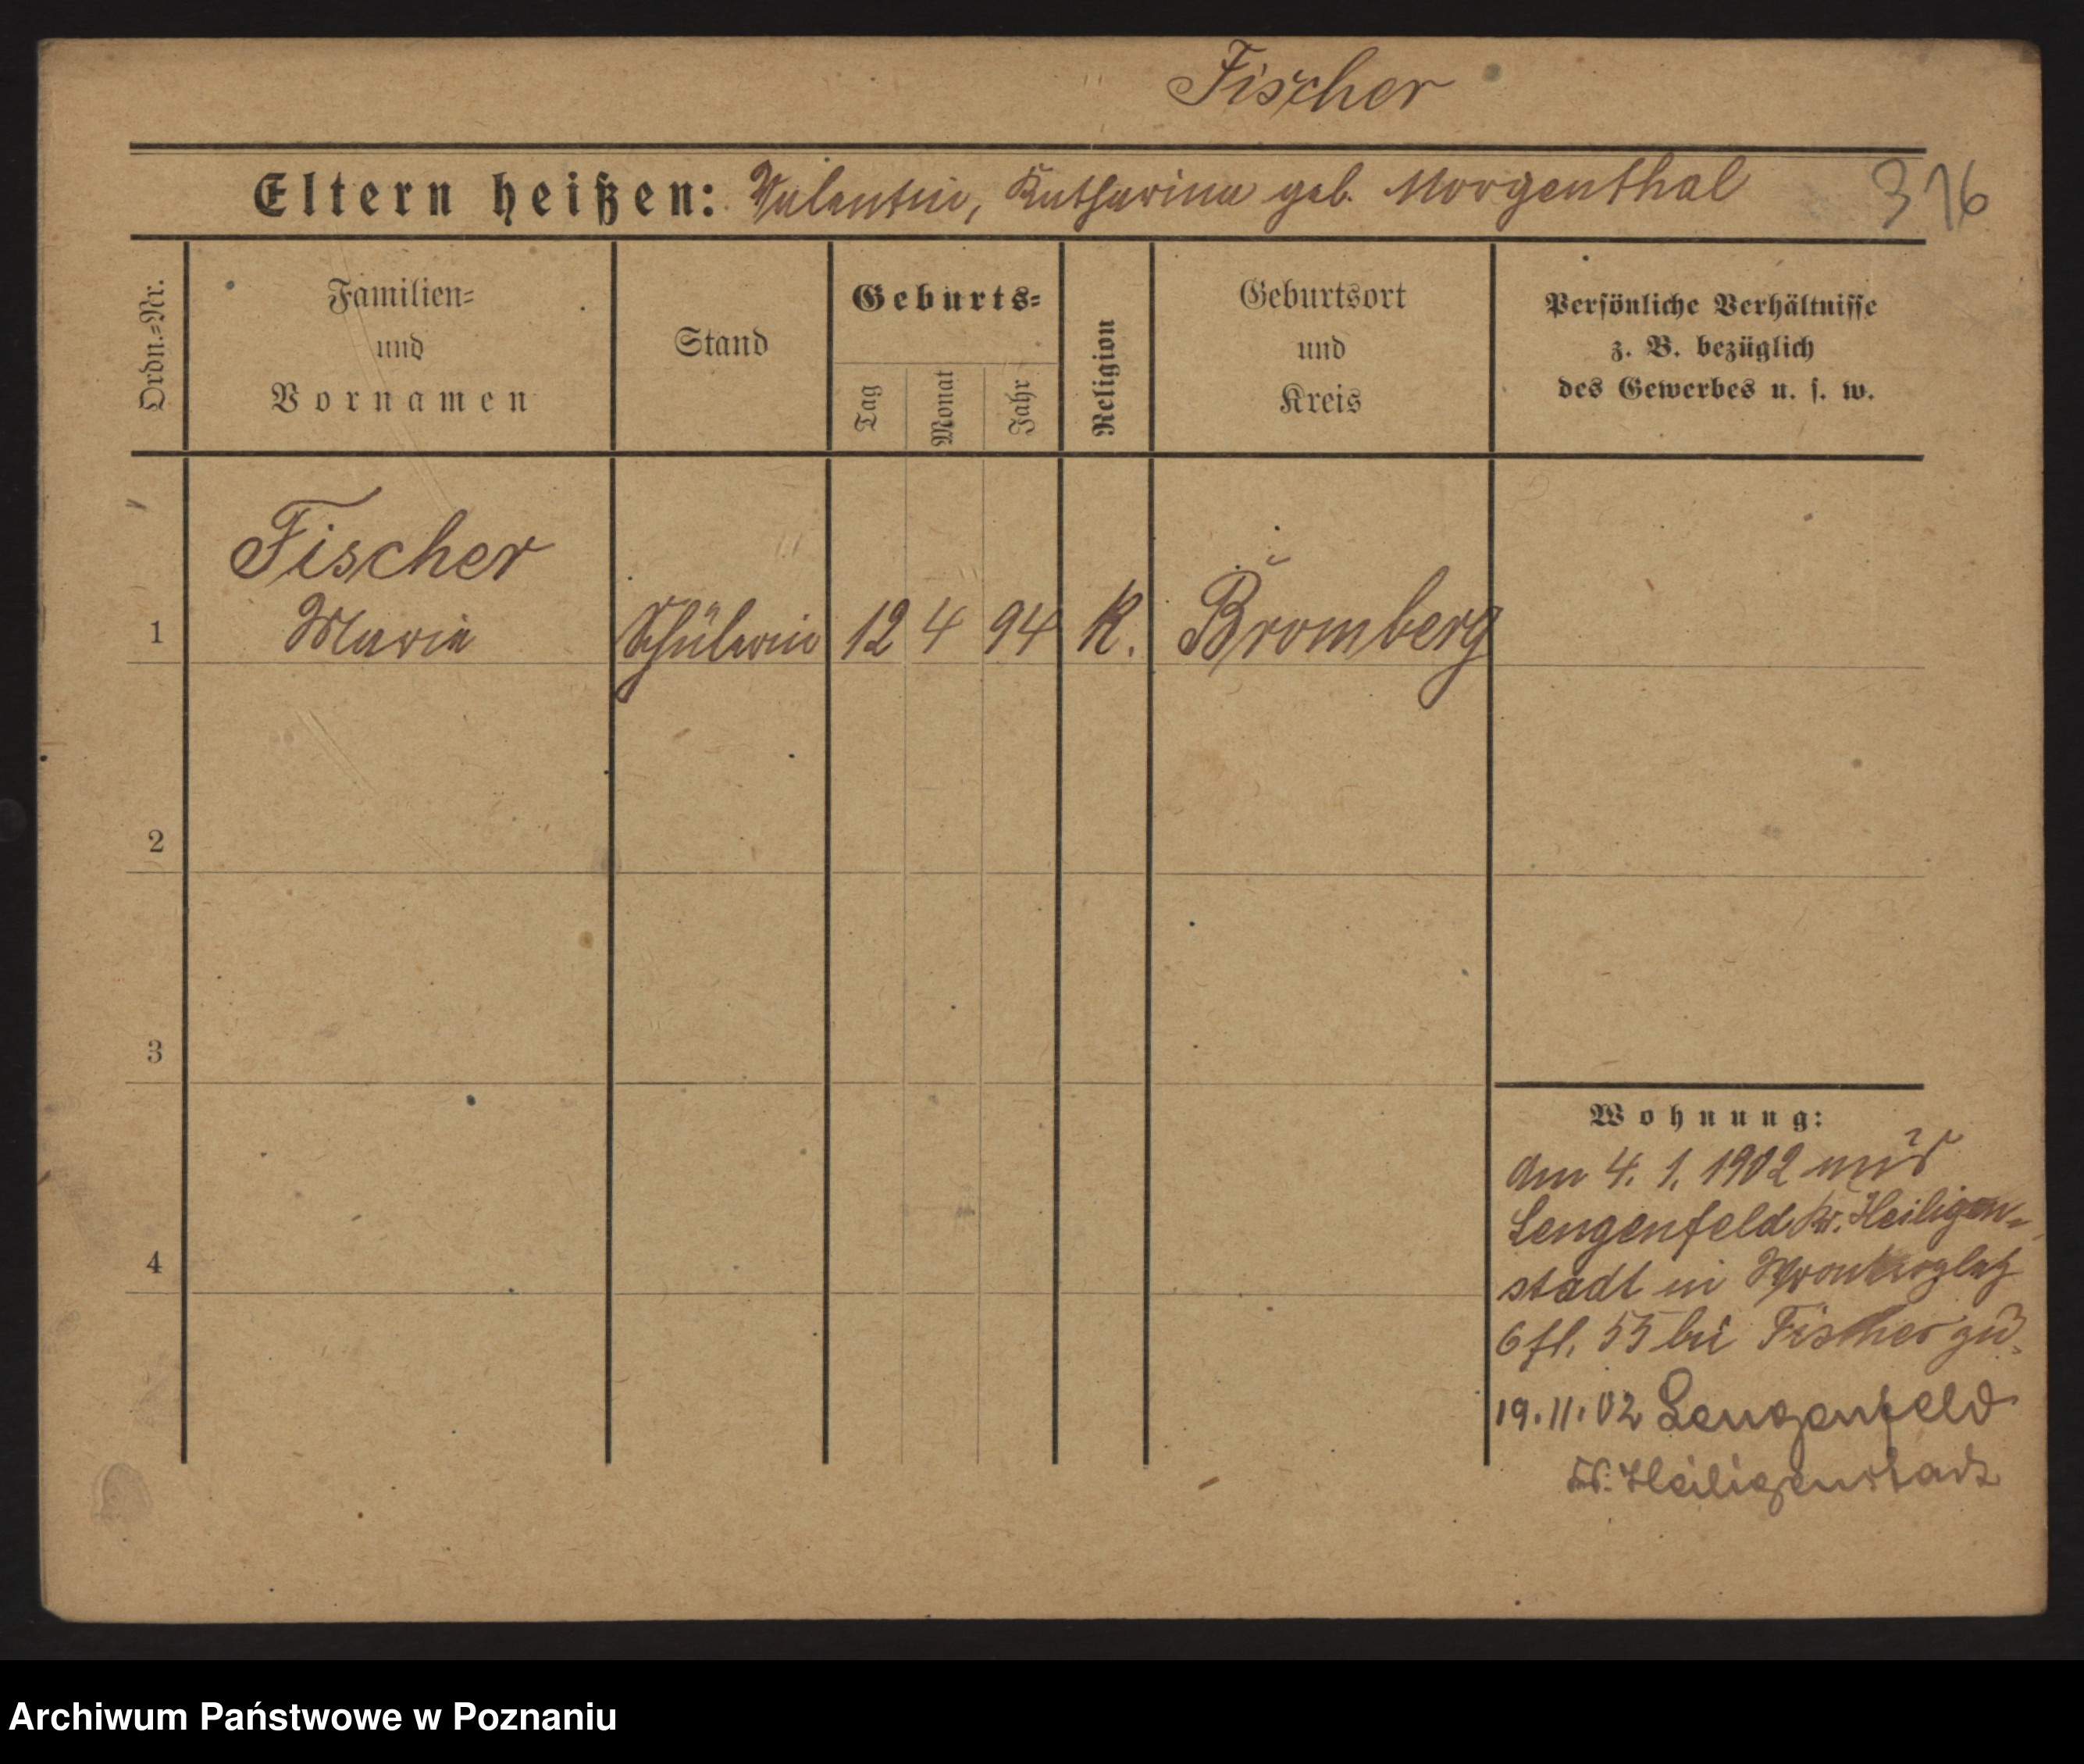 Fischer
Eltern heißen: Valentin, Katharina geb. Morgenthal 316
Ordn.=Nr.
Familien=
und
Vornamen
Stand
Geburts=
Tag
Monat
Jahr
Religion
Geburtsort
und
Kreis
Persönliche Verhältnisse
z. B. bezüglich
des Gewerbes u. s. w.
Fischer
1 Maria Schülerin 12 4 94 K. Bromberg
2
3
4
Wohnung:
Am 4. 1. 1902 aus
Lengenfeld Kr. Heiligen=
stadt in Wronkerplatz
6 fl. 55 bei Fischer zu.
19.11.02 Lengenfeld
Kr. Heiligenstadt
Archiwum Państwowe w Poznaniu